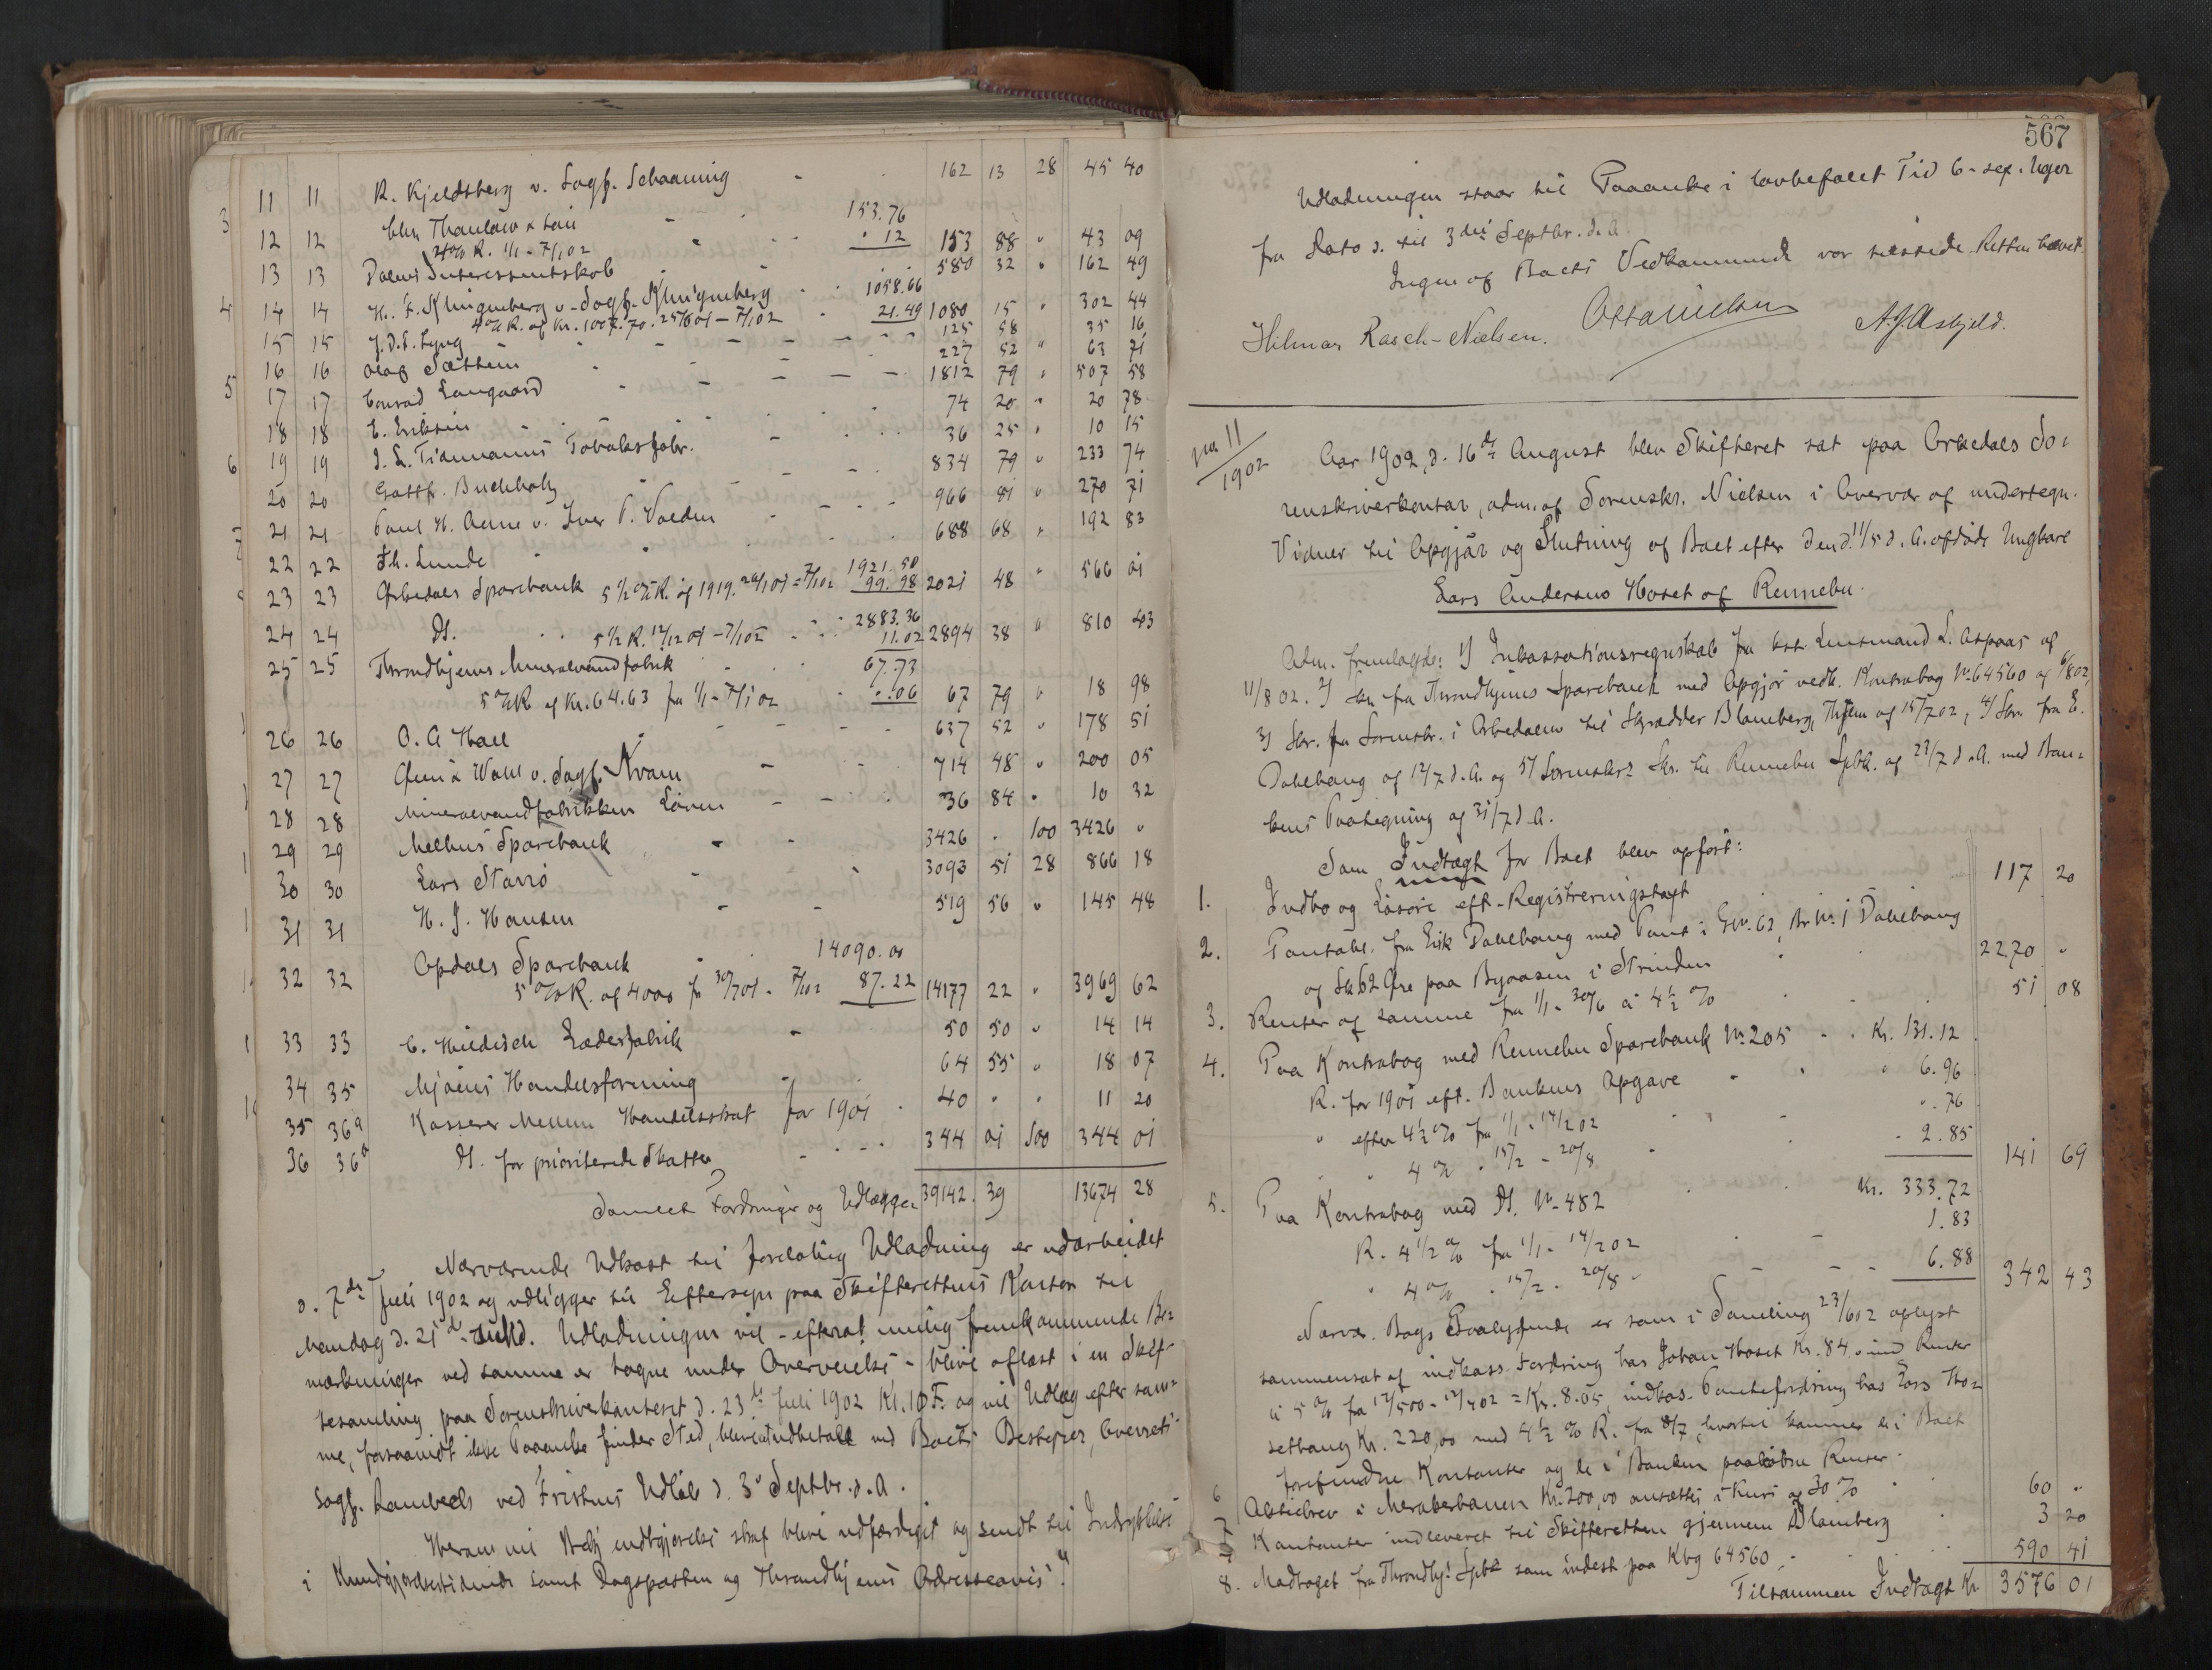 11 11 R. Kjeldsberg v. Sagf. Schaaning - - 162 13 28 45 40
3 12 12 Chr. Thaulow & Søn - - 153.76
4% R. 1/1 - 7/1 02 - - - .12 153 88 " 43 09
13 13 Dalens Interessentskab - - 580 32 " 162 49
4 14 14 H. F. Klingenberg v. Sagf. Klingenberg - - 1058.66
4% R. af Kr. 1007.70. 25/6 01 - 7/1 02 - 21.49 1080 15 " 302 44
15 15 J. D. S. Lyng - - - - - - - 125 58 35 16
16 16 Olaf Sættem - - - - - 227 52 " 63 71
5 17 17 Conrad Langaard - - - - - 1812 79 " 507 58
18 18 E. Eriksen - - - - 74 20 " 20 78
6 19 19 J. L. Tiedemanns Tobaksfabr. - - - 36 25 " 10 15
20 20 Gottfr. Buchholz - - - 834 79 " 233 74
7 21 21 Paul H. Aune v. Iver P. Volden - - - 966 81 " 270 71
22 22 Fr. Lunde - - - 688 68 " 192 83
23 23 Orkedals Sparebank 5 1/2 % R. af 1919. - 7/1 02 1921.50 99.98 2021 48 " 566 01
24 24 D. - - 5 1/2 R. 12/12 01 - 7/1 02 - - 2883.36 11.02 2894 38 " 810 43
25 25 Throndhjems Mineralvandfabrik - - - 67.73
5 % R. af Kr. 64.63 fra 1/1 - 7/1 02 - .06 67 79 " 18 98
26 26 O. A Hall - - - - - 637 52 " 178 51
27 27 & Wahl v. Sagf. Kvam - - 714 48 " 200 05
28 28 Mineralvandfabrikken Løven - - - 36 84 " 10 32
29 29 Melhus Sparebank - - 3426 " 100 3426 "
30 30 Lars Stavrø - - 3093 51 28 866 18
31 31 H. J. Hansen - - 519 56 " 145 48
32 32 Opdals Sparebank - - 14090.00
5 % R. af 4000 fr 30/7 01 - 7/1 02 87.22 14177 22 " 3969 62
33 33 C. Hildisch Læderfabrik - 50 50 " 14 14
34 35 Mjøens Handelsforening - 64 55 " 18 07
35 36a Kasserer Mellem Handelsskat for 1901 - 40 " " 11 20
36 36b D. for prioriterede Skatter - - - - 344 01 100 344 01
Samlet Fordringer og Udlægger 39142. 39 13674 28
Nærværende Udkast til foreløbig Udlodning er udarbeidet
d. 7de Juli 1902 og udligger til Eftersyn paa Skifterettens Kontor til
Mandag d. 21de. Udlodningen vil - efterat mulig fremkommende Be-
mærkninger ved samme er tagne under Overveielse - blive oplæst i en Skif-
tesamling paa Sorenskriverkontoret d. 23de Juli 1902 Kl. 10 F. og vil Udlæg efter sam-
me, forsaavidt ikke Paaanke finder Sted, blive udbetalt ved Boets Bestyrer, Overrets-
sagf. Lambech ved Fristens Udløb d. 3. Septbr. d. A.
Herom vil Bekjendtgjørelse straf blive udfærdiget og sendt til Indrykkelse
i Kundgjørelsestidende samt Dagsposten og Throndhjems Adresseavis."
567
Udlodningen staar til Paaanke i lovbefalet Tid 6 - sex - Uger
fra Dato d. til 3die Septbr. d. A
Ingen af Boets Vedkommende var tilstede. Retten hævet.
Otto Nielsen
Hilmar Rasch-Nielsen. A. J. Askjeld.
No 11/1902 Aar 1902, d. 16de August blev Skifteret sat paa Orkedals So-
renskriverkontor, adm. af Sorenskr. Nielsen i Overvær af undertegn.
Vidner til Opgjør og Slutning af Boet efter den d. 11/5 d. A. afdøde Ungkarl
Lars Andersen Hoset af Rennebu.
Adm. fremlagde: 1) Inkassationsregnskab fra kst. Lensmand L. Aspaas af
11/8 02. 2) Skr. fra Throndhjems Sparebank med Opgjør vedk. Kontrabog No. 64560 af 6/8 02,
3) Skr. fra Sorenskr. i Orkedalen til Skrædder Blomberg, Thjem af 15/7 02, 4) Skr. fra E.
Dahlhaug af 12/7 d. A. og 5) Sorenskrs Skr. til Rennebu Spbk. af 27/7 d. A. med Ban-
kens Paategning af 31/7 d. A.
Som Indtægt for Boet blev opført:
1. Indbo og Løsøre eft. Registreringstaxt 117 20
2. Pantobl. fra Erik Dahlhaug med Pant i G.No. 62, Br. No. 1 Dahlhaug
og Sk 62 Øre paa Byaasen i Strinden - - 2270 "
3. Renter af samme fra 1/1 - 30/6 à 4 1/2 % - - 51 08
4. Paa Kontrabog med Rennebu Sparebank No. 205 - - Kr. 131.12
R. for 1901 eft. Bankens Opgave - - " 6.96
" efter 4 1/2 % fra 1/1 - 14/2 02 - - ". 76
" " 4 % " 15/2 - 20/8 - - 2.85 141 69
5. Paa Kontrabog med D. No. 482 - - Kr. 333.72
R. 4 1/2 % fra 1/1 - 14/2 02 - - 1.83
" 4 % " 15/2 - 20/8 " - - - 6.88 342 43
Nærv. Bogs Paalydende er som i Samling 23/6 02 oplyst
sammensat af indkass. Fordring hos Johan Hoset Kr. 84, " med Renter
à 5 % fra 12/5 00 - 12/4 02 = Kr. 8.05, indkas. Pantefordring hos Lars Ho-
sethaug Kr. 220,00 med 4 1/2 % R. fra 8/7, hvortil kommer de i Boet
forefundne Kontanter og de i Banken paaløbne Renter.
6 Aktiebrev i Merakerbanen Kr. 200,00 ansættes i Kurs af 30 % - 60 "
7 Kontanter indleveret til Skifteretten gjennem Blomberg - 3 20
8. Modtaget fra Throndhj. Spbk som indest. paa Kbg 64560 - - - 590 41
Tilsammen Indtægt Kr 3576 01